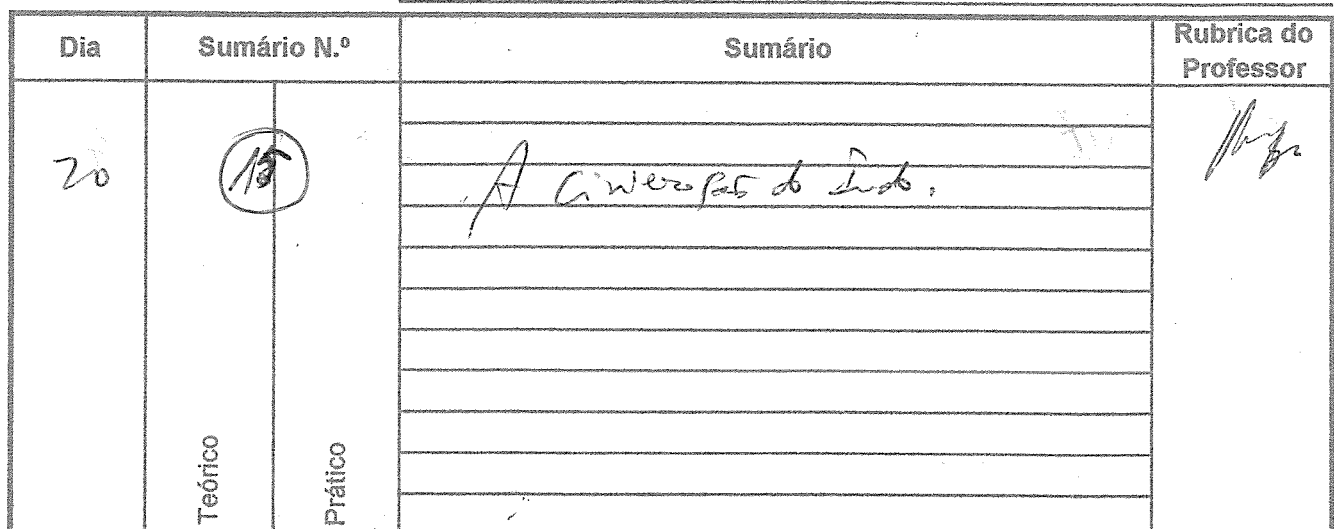 Dia Sumário N.º Sumário Rubrica do Professor
20 15 A Civilização do Indo.
Teórico Prático